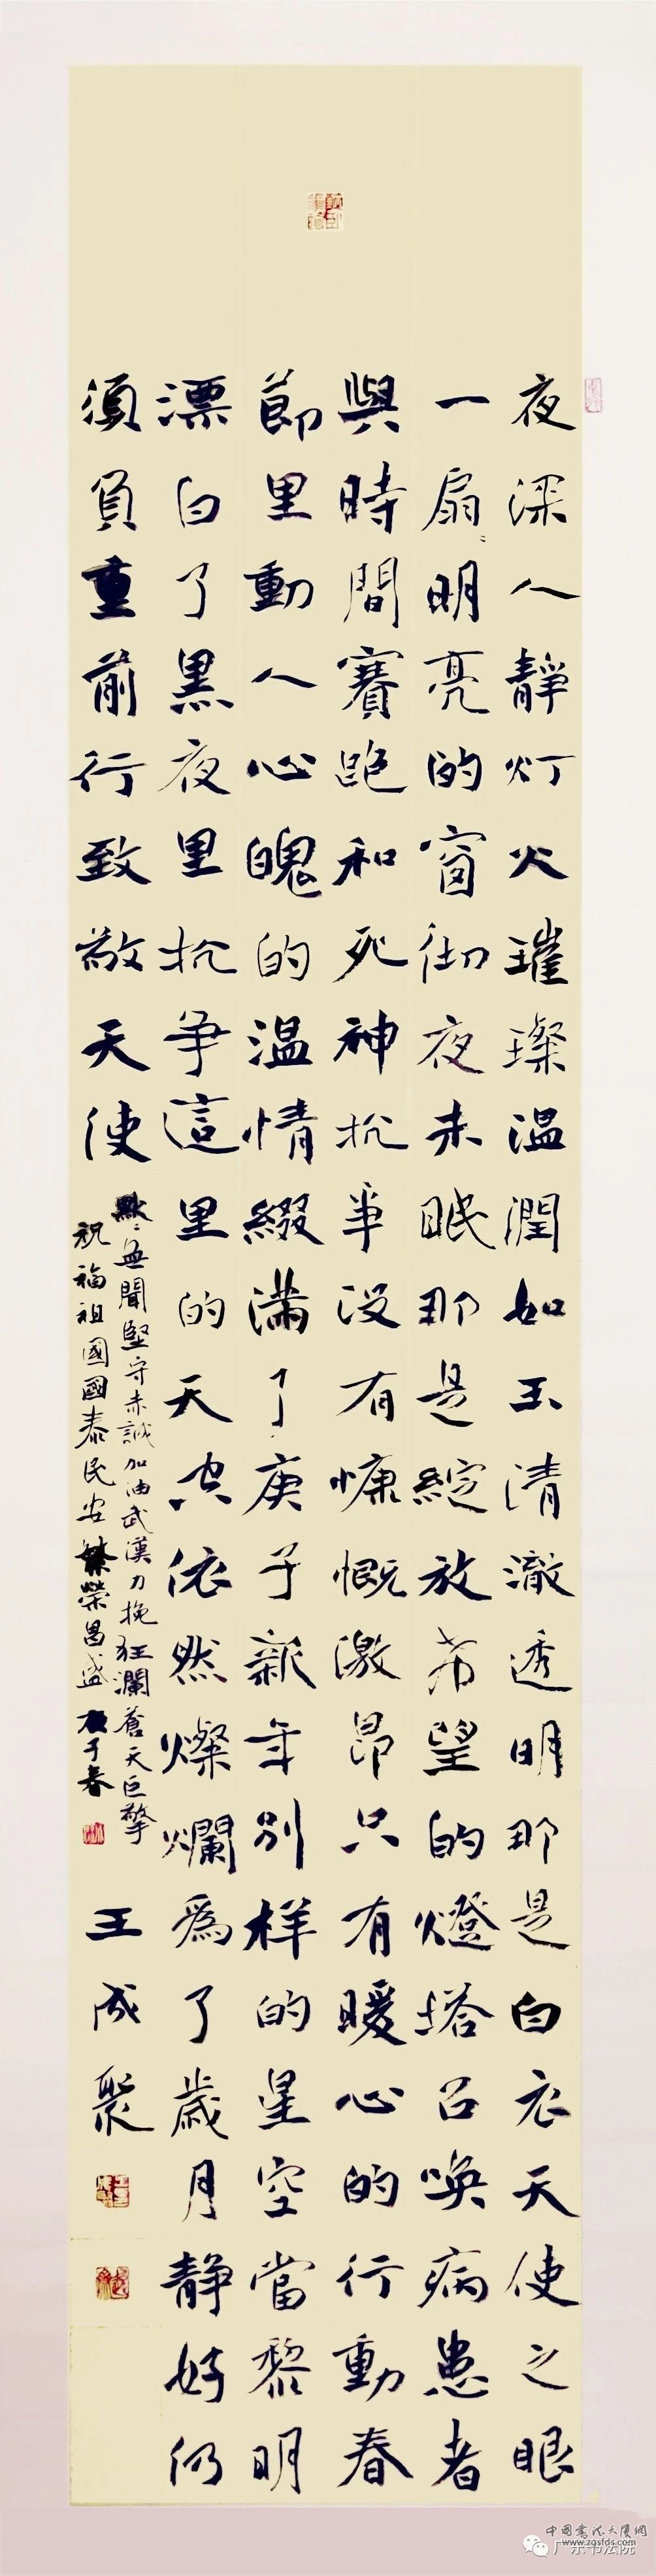 夜深人靜灯火璀璨温潤如玉清澈透明那是白衣天使之眼
一扇〻明亮的窗彻夜未眠那是綻放希望的燈塔召喚病患者
與時間賽跑和死神抗争没有慷慨激昂只有暖心的行動春
節里動人心魄的温情綴满了庚子新年别样的星空當黎明
漂白了黑夜里抗争這里的天空依然燦爛為了歲月静好仍
須負重前行致敬天使
默〻無聞堅守赤誠加油武漢力挽狂瀾蒼天巨擎
祝福祖國國泰民安繁榮昌盛庚子春
王成聚
中国书法大厦网
www.zgsfds.com
广东书法院